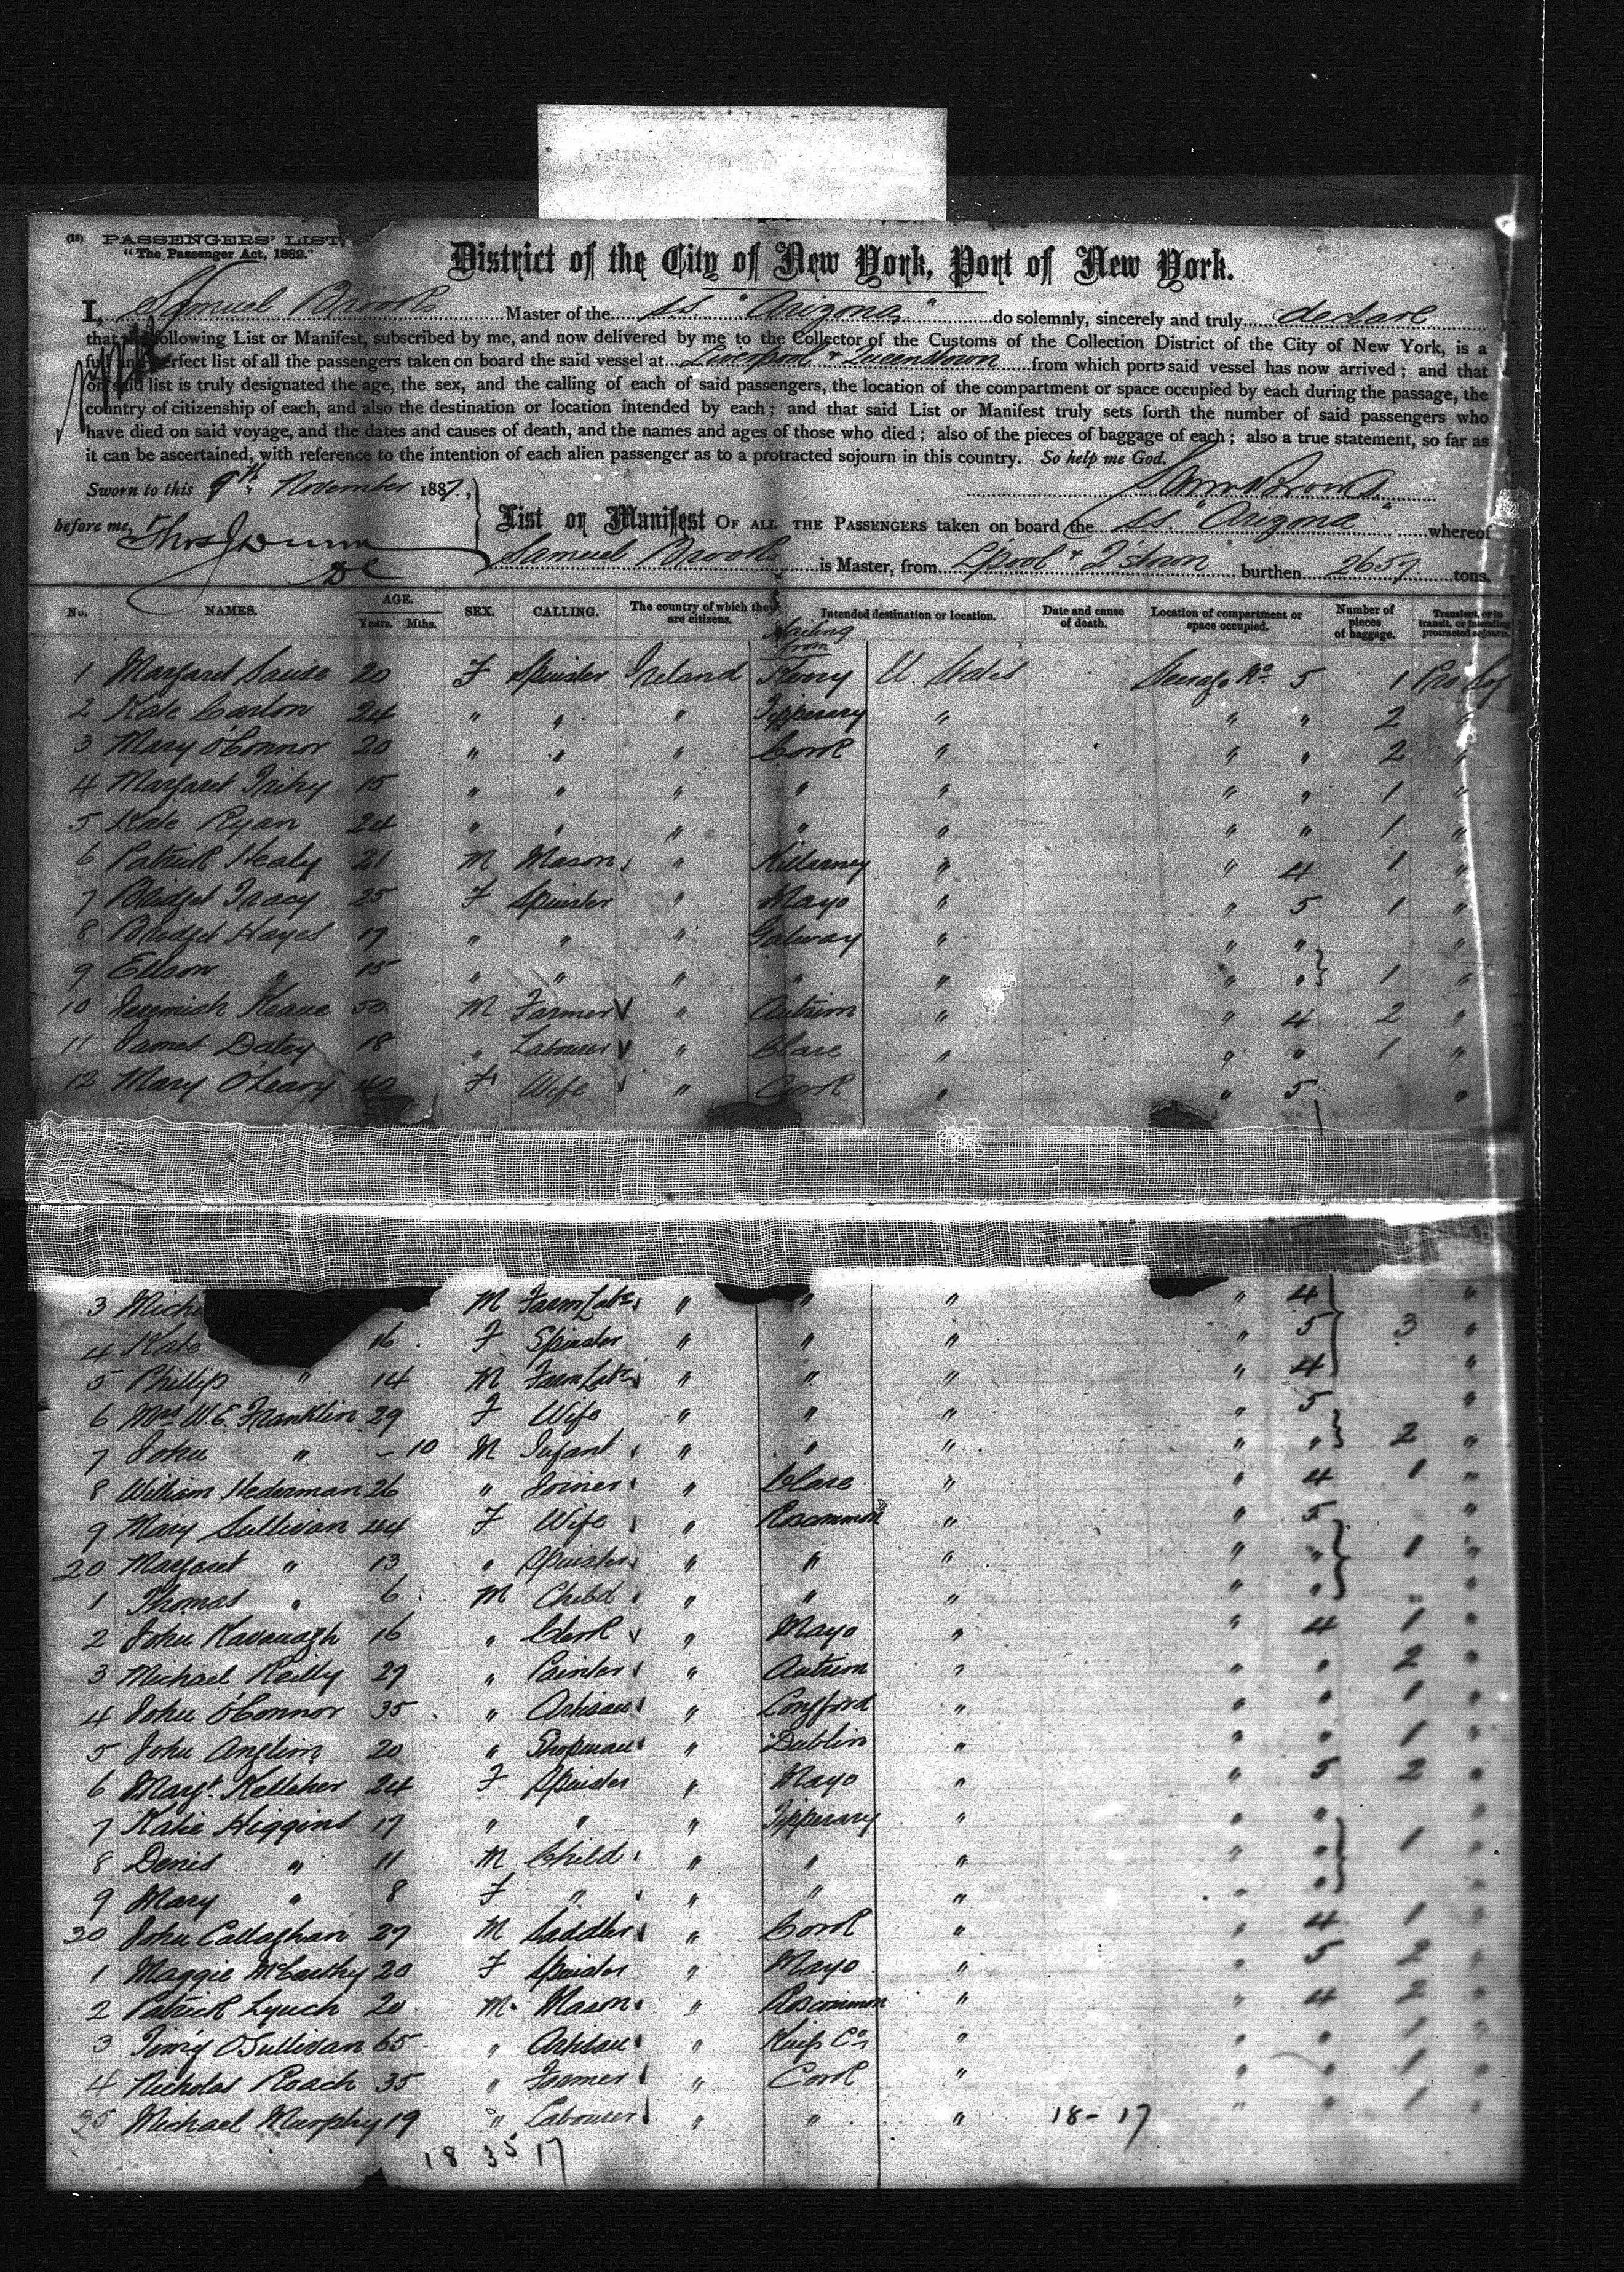 (18) PASSENGERS' LIST,
"The Passenger Act, 1882."
District of the City of New York, Port of New York.
I, Samuel Brooks Master of the ss. "Arizona," do solemnly, sincerely and truly declare
that the following List or Manifest, subscribed by me, and now delivered by me to the Collector of the Customs of the Collection District of the City of New York, is a
full and perfect list of all the passengers taken on board the said vessel at Liverpool & Queenstown from which ports said vessel has now arrived; and that
on said list is truly designated the age, the sex, and the calling of each of said passengers, the location of the compartment or space occupied by each during the passage, the
country of citizenship of each, and also the destination or location intended by each; and that said List or Manifest truly sets forth the number of said passengers who
have died on said voyage, and the dates and causes of death, and the names and ages of those who died; also of the pieces of baggage of each; also a true statement, so far as
it can be ascertained, with reference to the intention of each alien passenger as to a protracted sojourn in this country. So help me God.
Sworn to this 9th November 1887, Saml Brooks
before me, Thos J Dunn List or Manifest OF ALL THE PASSENGERS taken on board the ss. "Arizona" whereof
DC Samuel Brooks is Master, from L'pool & Q'stown burthen 2657 tons.
No. NAMES. AGE. Years. Mths. SEX. CALLING. The country of which they are citizens. Intended destination or location. Date and cause of death. Location of compartment or space occupied. Number of pieces of baggage. Transient, or in transit, or intending protracted sojourn.
Hailing from
1 Margaret Sause 20 F Spinster Ireland Kerry U. States Steerage No. 5 1
2 Kate Carlon 24 " " " Tipperary " " " 2 "
3 Mary O'Connor 20 " " " Cork " " " 2 "
4 Margaret 15 " " " " " " " 1 "
5 Kate Ryan 24 " " " " " " " 1 "
6 Patrick Healy 21 M Mason " Killarney " " 4 1 "
7 Bridget Tracy 25 F Spinster " Mayo " " 5 1 "
8 Bridget Hayes 17 " " " Galway " " " "
9 Ellen " 15 " " " " " " " 1 "
10 Jeremiah Keane 50 M Farmer " Antrim " " 4 2 "
11 James Daley 18 " Labourer " Clare " " " 1 "
12 Mary O'Leary 40 F Wife " Cork " " 5 "
3 Mich M Farm Labr " " " " 4 "
4 Kate 16 F Spinster " " " " 5 3 "
5 Phillip " 14 M Farm Labr " " " " 4 "
6 Mrs W.C. Franklin 29 F Wife " " " " 5 "
7 John " - 10 M Infant " " " " " 2 "
8 William Hederman 26 " Joiner " Clare " " 4 1 "
9 Mary Sullivan 44 F Wife " Roscommon " " 5 "
20 Margaret " 13 " Spinster " " " " " 1 "
1 Thomas " 6 M Child " " " " " "
2 John Kavanagh 16 " Clerk " Mayo " " 4 1 "
3 Michael Reilly 27 " Painter " Antrim " " " 2 "
4 John O'Connor 35 " Artisan " Longford " " " 1 "
5 John Anglim 20 " Shopman " Dublin " " " 1 "
6 Margt. Kelleher 24 F Spinster " Mayo " " 5 2 "
7 Katie Higgins 17 " " " Tipperary " " " "
8 Denis " 11 M Child " " " " " 1 "
9 Mary " 8 F " " " " " " "
30 John Callaghan 27 M Saddler " Cork " " 4 1 "
1 Maggie McCarthy 20 F Spinster " Mayo " " 5 2 "
2 Patrick Lynch 20 M Mason " Roscommon " " 4 2 "
3 Timy O'Sullivan 65 " Artisan " Kings Co. " " " 1 "
4 Nicholas Roach 35 " Farmer " Cork " " " 1 "
35 Michael Murphy 19 " Labourer " " " 18-17 " " 1 "
18 35 17